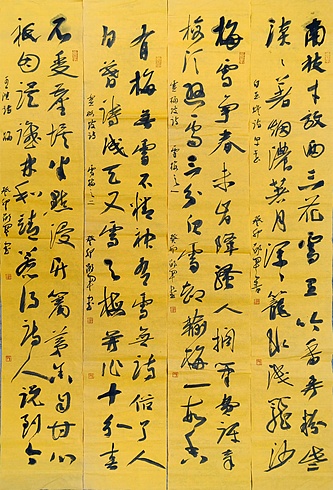 南枝才放两三花雪里吟香弄粉些
淡淡著烟浓著月深深笼水浅笼沙
白玉蟾诗 早春 癸卯
梅雪争春未肯降骚人搁笔费评章
梅须逊雪三分白雪却输梅一段香
卢梅坡诗 雪梅之一 癸卯
有梅无雪不精神有雪无诗俗了人
日暮诗成天又雪与梅并作十分春
卢梅坡诗 雪梅之二 癸卯
不受尘埃半点侵竹篱茅舍自甘心
只因误识林和靖惹得诗人说到今
王淇诗 梅 癸卯